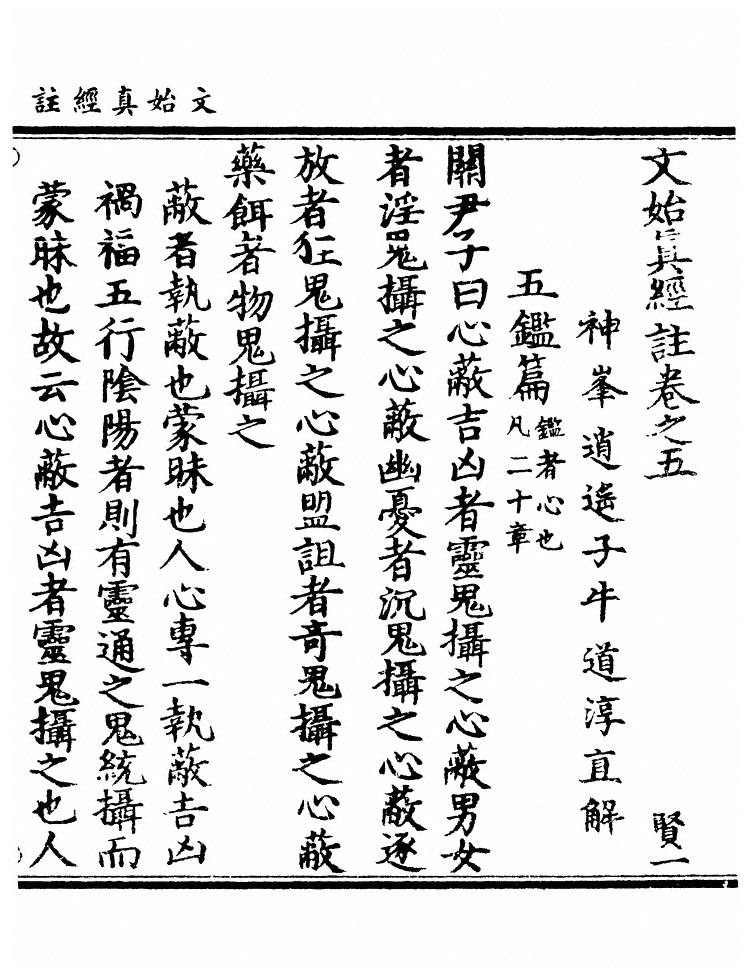 文始真經註
文始真經註卷之五　賢一
神峯逍遙子牛道淳直解
五鑑篇鑑者心也凡二十章
關尹子曰心蔽吉凶者靈鬼攝之心蔽男女
者淫鬼攝之心蔽幽憂者沉鬼攝之心蔽逐
放者狂鬼攝之心蔽盟詛者奇鬼攝之心蔽
藥餌者物鬼攝之
蔽者執蔽也蒙昧也人心專一執蔽吉凶
禍福五行陰陽者則有靈通之鬼統攝而
蒙昧也故云心蔽吉凶者靈鬼攝之也人